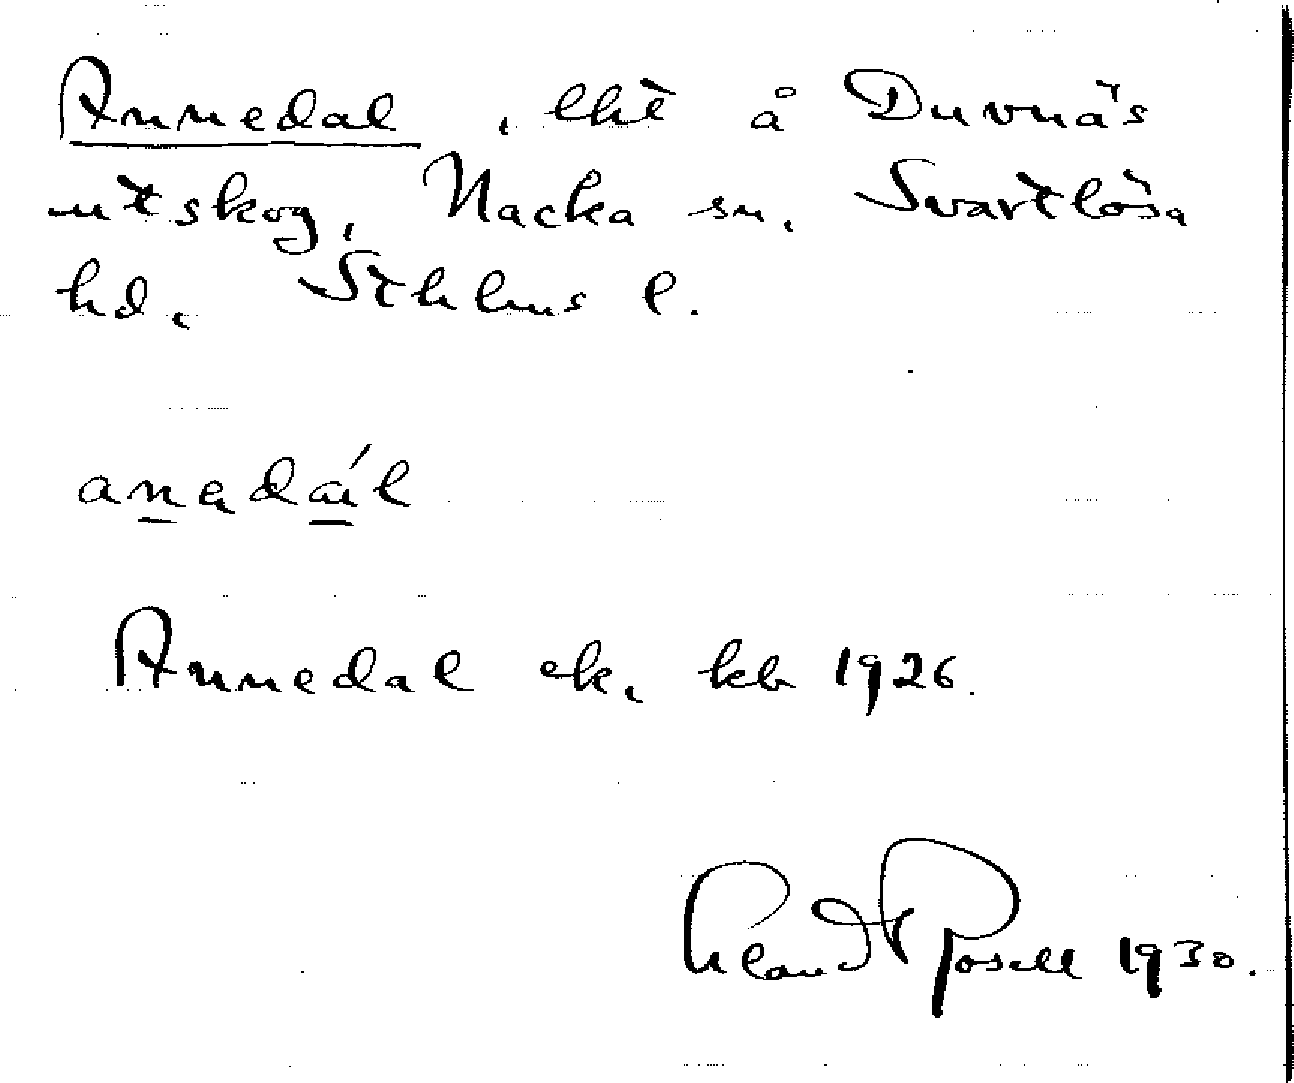 Annedal, lht å Duvnäs
utskog, Nacka sn, Svartlösa
hd, Sthlms l.
anadál
Annedal ek, kb 1926.
1930.